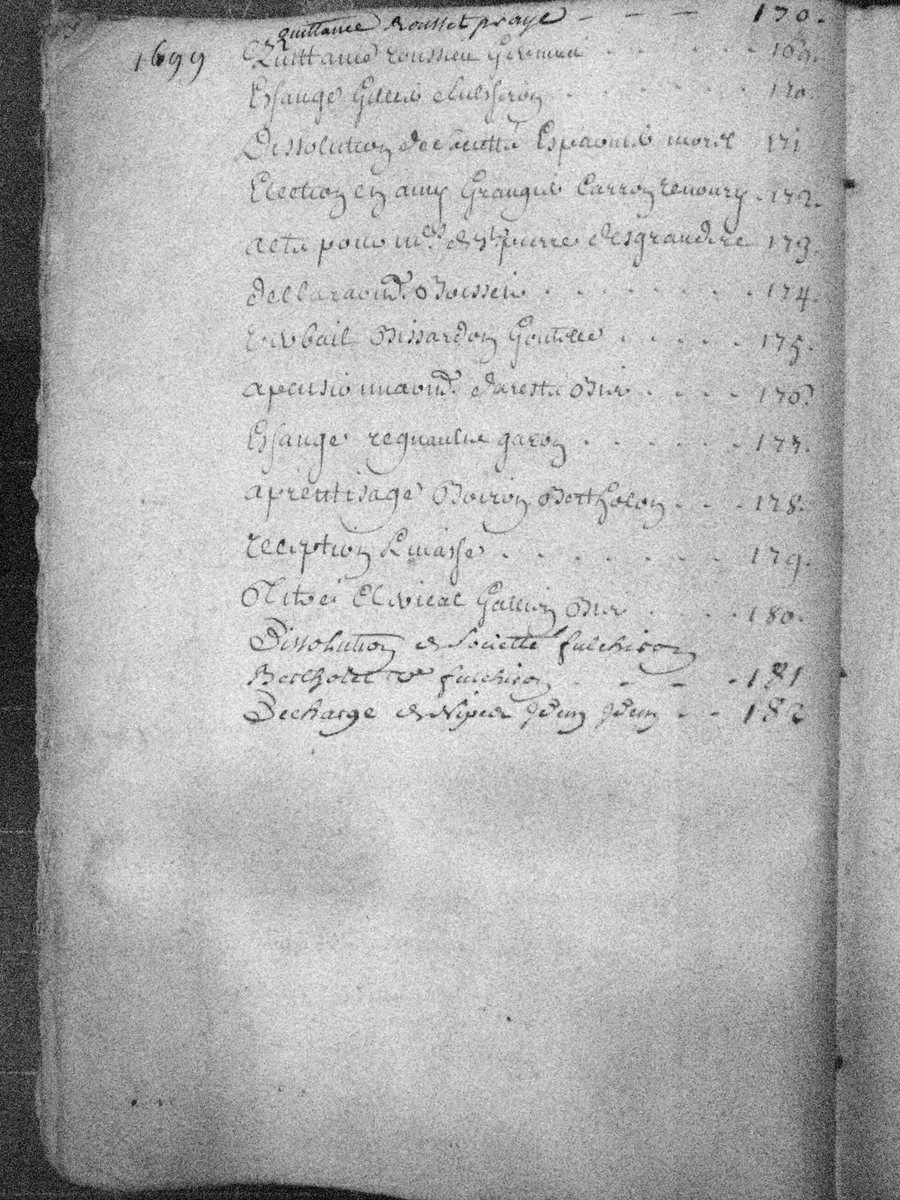 quittance Rousset praye - - - 170.
1699 Quittance roussieu Germain . . . . . 169.
Eschange Gallis . . . . . 170
Dissolution de societté Espaonis morel 171
Election en amy Granges Carron renoury . 172.
acte pour mes. de st pierre desgrandere 173
declaraon. Boissieu . . . . . 174.
bail Bissardon Gouttee . . . . 175.
apensionnaon. daresté . . . . 176
Eschange regnauld garon . . . . 177.
aprentisage Boiron Bertholon . . . 178.
reception . . . . . 179.
Titre Clerical Gallien . . . 180.
Dissolution de Societté fulchiron
Bertholet ve fulchiron . - - - . 181
Decharge de pieces Idem Idem . . 182